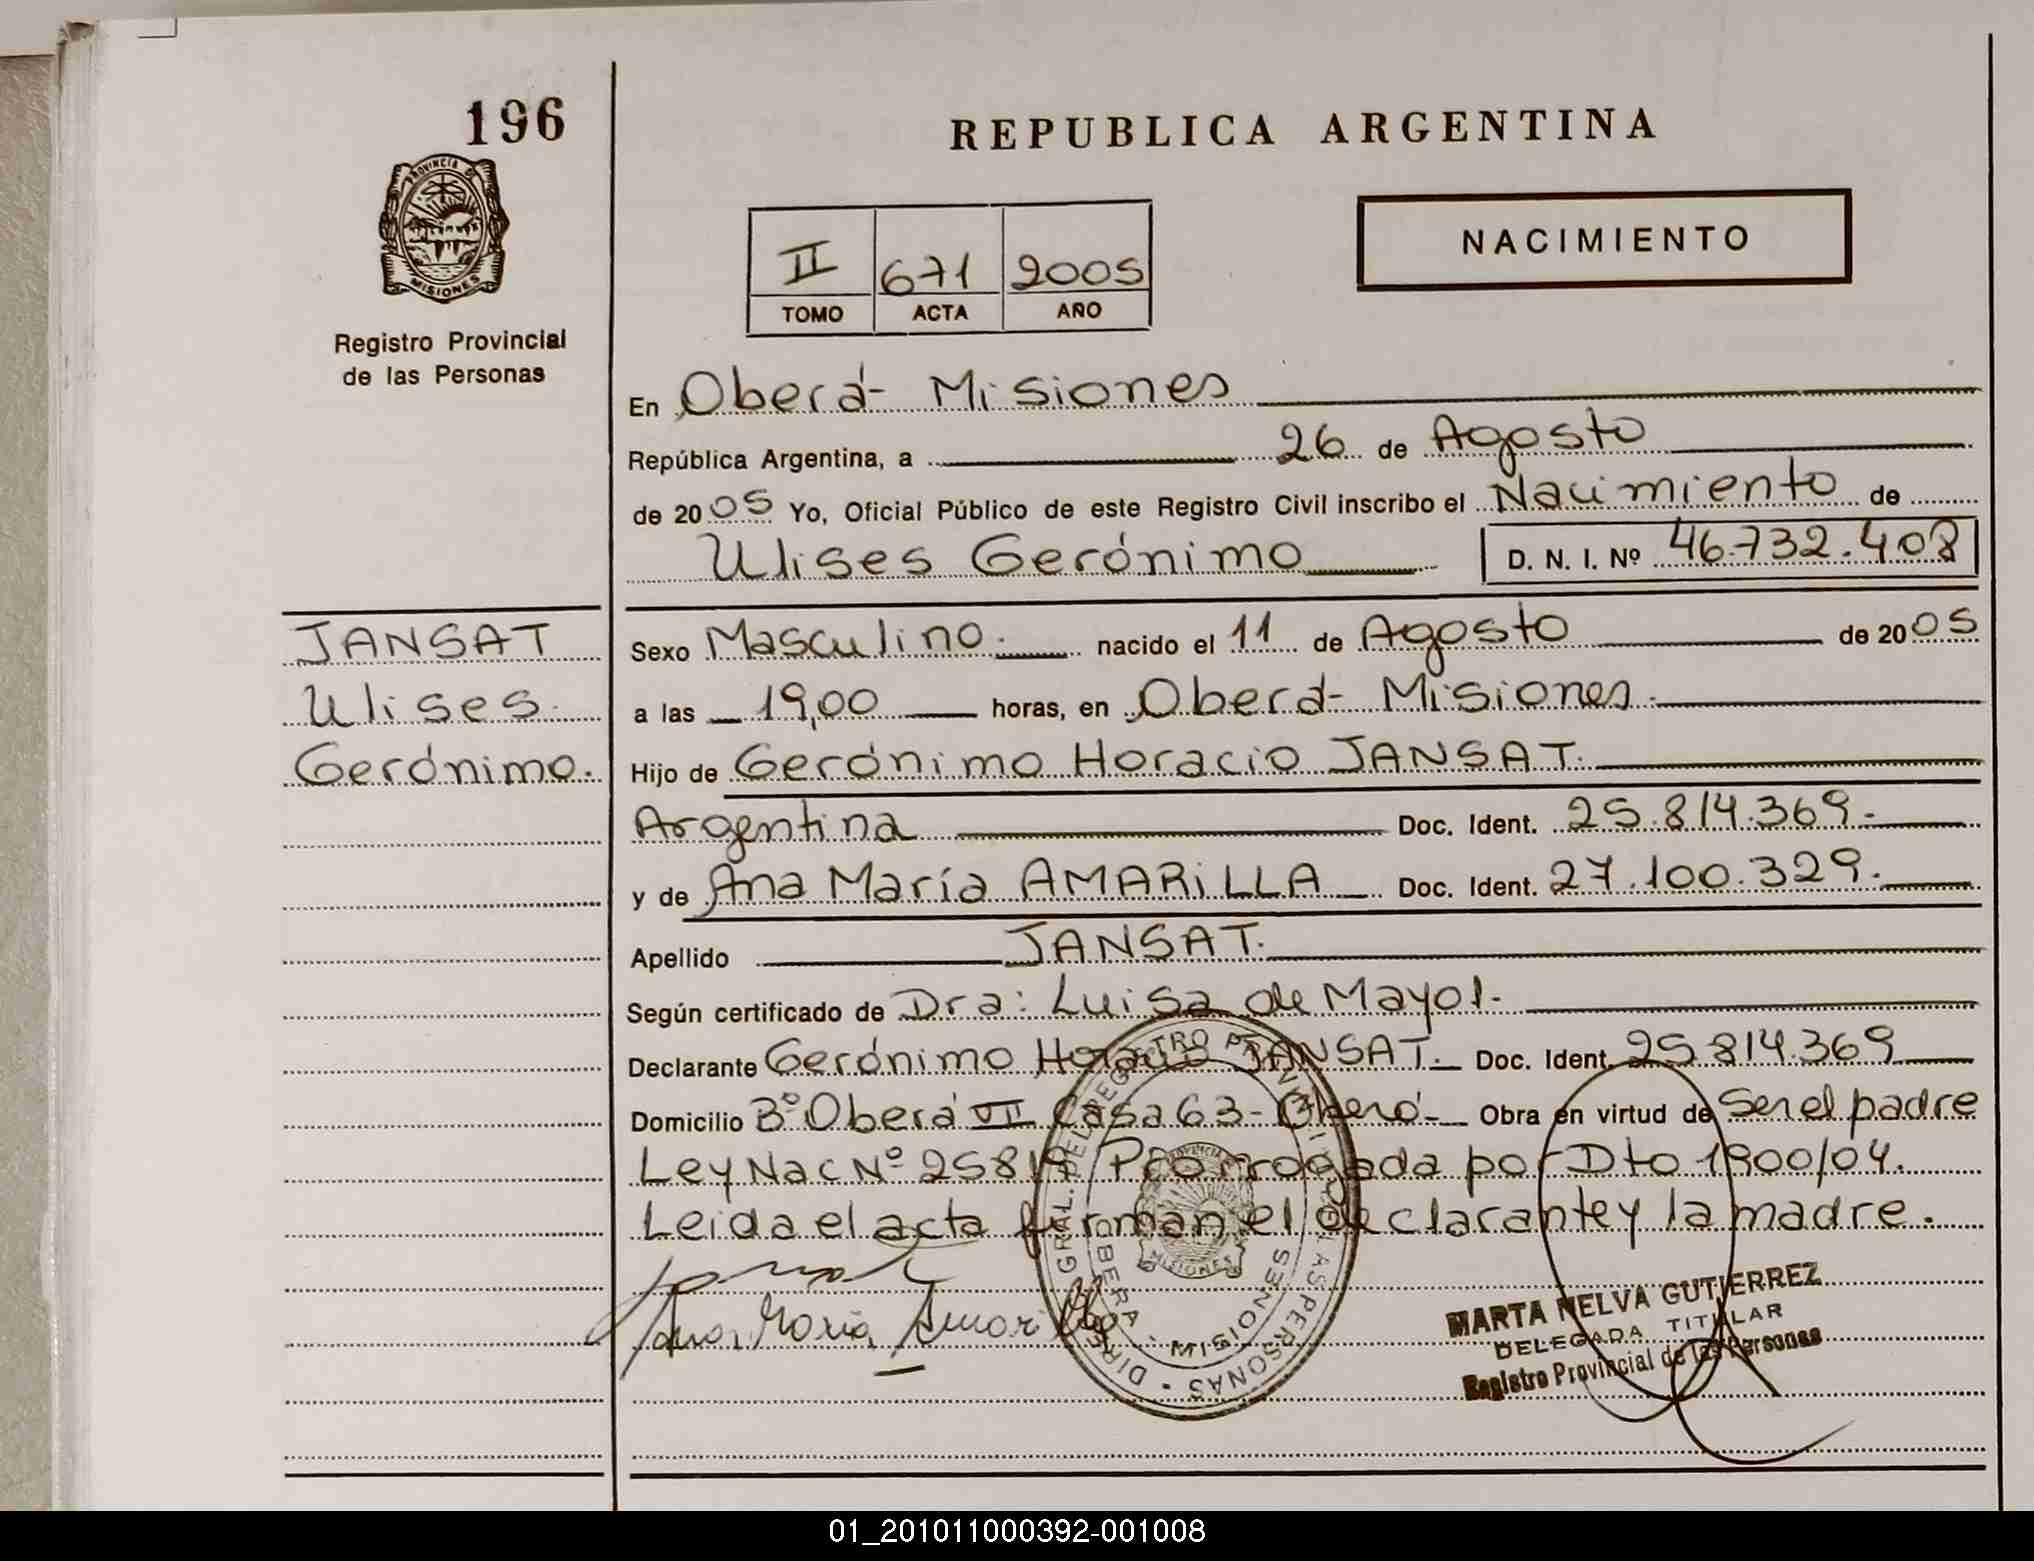 196
PROVINCIA DE
MISIONES
Registro Provincial
de las Personas
REPUBLICA ARGENTINA
II 671 2005
TOMO ACTA AÑO
NACIMIENTO
En Oberá- Misiones
República Argentina, a 26 de Agosto
de 2005 Yo, Oficial Público de este Registro Civil inscribo el Nacimiento de
Ulises Gerónimo D. N. I. Nº 46.732.408
JANSAT
Ulises
Gerónimo.
Sexo Masculino. nacido el 11 de Agosto de 2005
a las 19,00 horas, en Oberá- Misiones.
Hijo de Gerónimo Horacio JANSAT.
Argentina Doc. Ident. 25.814.369.-
y de Ana María AMARILLA Doc. Ident. 27.100.329.
Apellido JANSAT.
Según certificado de Dra: Luisa de Mayol.
Declarante Gerónimo Horacio JANSAT. Doc. Ident. 25814.369
Domicilio Bº Oberá VII Casa 63- Oberá- Obra en virtud de Ser el padre
Ley Nac Nº 25819 Prorrogada por Dto 1900/04.
Leida el acta firman el declarante y la madre.
Ana Maria Amarilla
DIREC. GRAL. DEL REGISTRO PROVINCIAL DE LAS PERSONAS
OBERA - MISIONES
PROVINCIA
MISIONES
MARTA NELVA GUTIERREZ
DELEGADA TITULAR
Registro Provincial de las Personas
01_201011000392-001008